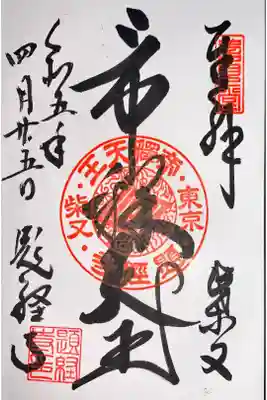 奉拝
柴又
帝釈天王
令和五年
四月廿五日
題経寺
東京・柴又・帝釈天王・題経寺